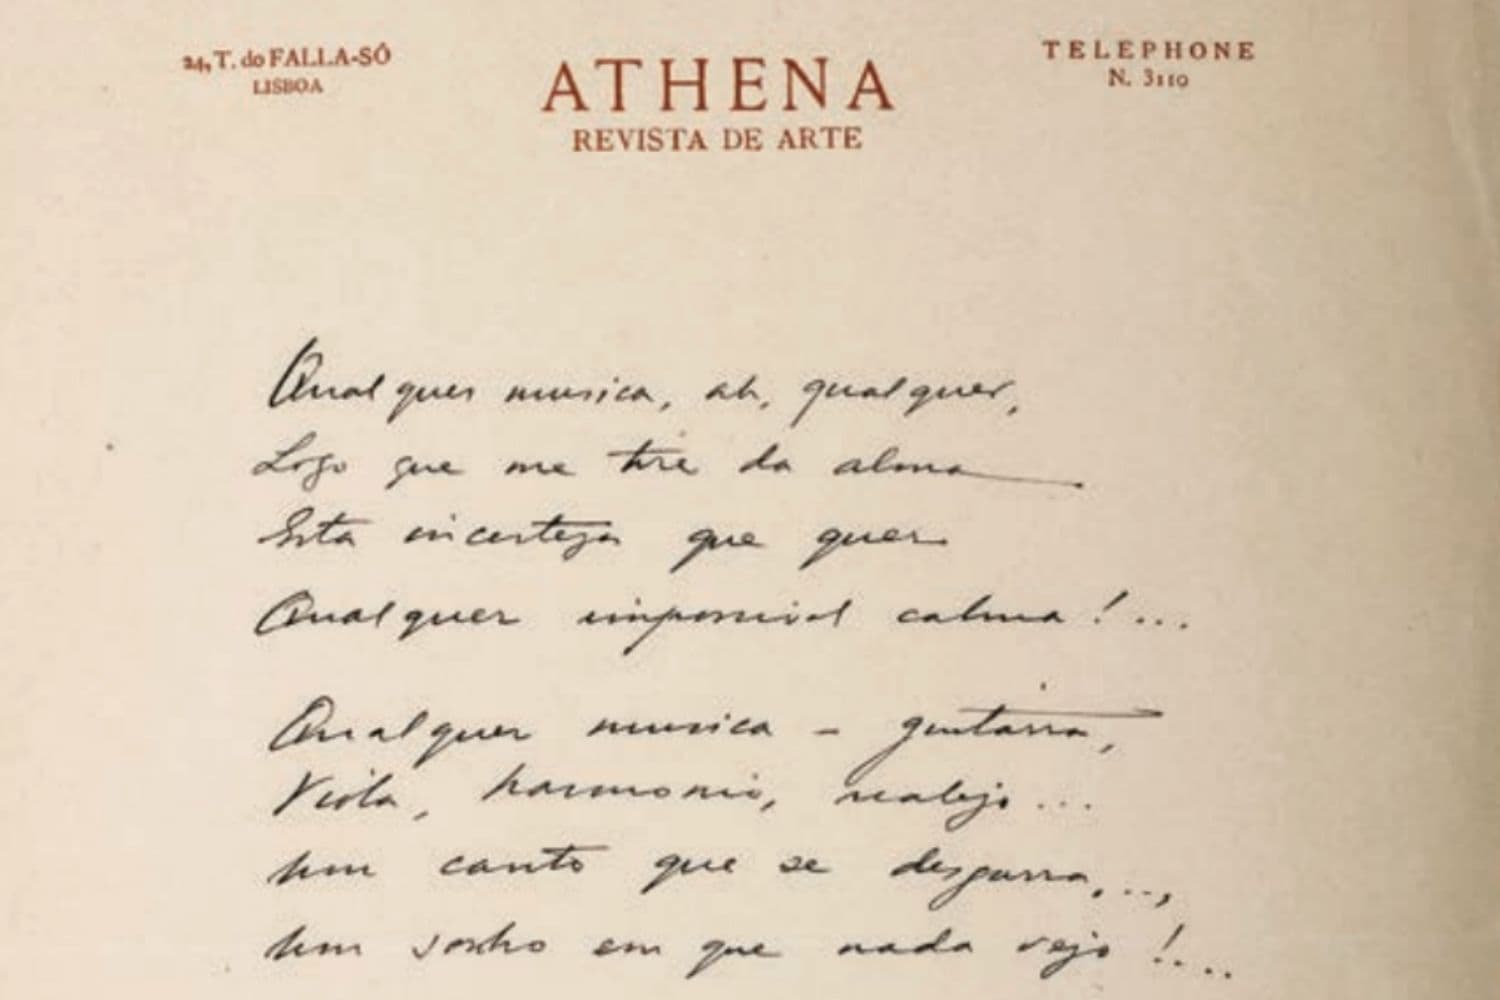 24, T. do FALLA-SÓ
LISBOA
ATHENA
REVISTA DE ARTE
TELEPHONE
N. 3110
Qualquer musica, ah, qualquer,
Logo que me tire da alma
Esta incerteza que quer
Qualquer impossivel calma!...
Qualquer musica - guitarra,
Viola, harmonio, realejo...
Um canto que se desgarra...,
Um sonho em que nada vejo!...